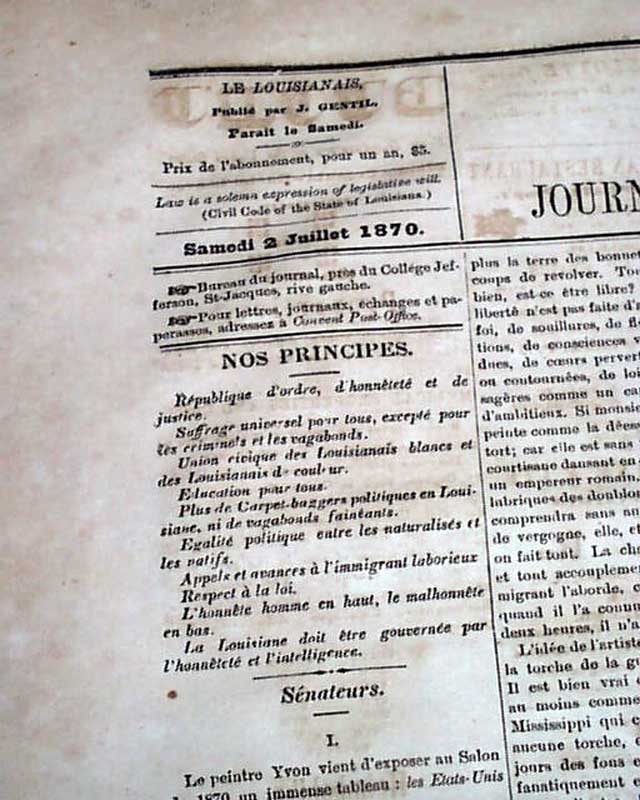 LE LOUISIANAIS,
Publié par J. GENTIL.
Parait le Samedi.
Prix de l'abonnement, pour un an, $5.
Law is a solemn expression of legislative will.
(Civil Code of the State of Louisiana.)
Samedi 2 Juillet 1870.
Bureau du journal, près du Collége Jef-
ferson, St-Jacques, rive gauche.
Pour lettres, journaux, échanges et pa-
perasses, adressez à Convent Post-Office.
NOS PRINCIPES.
République d'ordre, d'honnêteté et de
justice.
Suffrage universel pour tous, excepté pour
les criminels et les vagabonds.
Union civique des Louisianais blancs et
des Louisianais de couleur.
Education pour tous.
Plus de Carpet-baggers politiques en Loui-
siane, ni de vagabonds fainéants.
Egalité politique entre les naturalisés et
les natifs.
Appels et avances à l'immigrant laborieux
Respect à la loi.
L'honnête homme en haut, le malhonnête
en bas.
La Louisiane doit être gouvernée par
l'honnêteté et l'intelligence.
Sénateurs.
I.
Le peintre Yvon vient d'exposer au Salon
de 1870 un immense tableau : les Etats-Unis
JOURN
plus la terre des bonnet
coups de revolver. Tou
bien, est-ce être libre?
liberté n'est pas faite d'
foi, de souillures, de fi
tions, de consciences v
dues, de cœurs perver
ou contournées, de loi
sagères comme un ca
d'ambitieux. Si monsie
peinte comme la dées
tort; car elle est sans
courtisane dansant en
un empereur romain.
fabriques des doublo
comprendra sans au
de vergogne, elle, et
on fait tout. La ch
et tout accouplemen
migrant l'aborde, c
quand il l'a connu
deux heures, il n'a
L'idée de l'artiste
la torche de la gu
Il est bien vrai
au moins comme
Mississippi qui c
aucune torche,
jours des fous e
fanatiquement